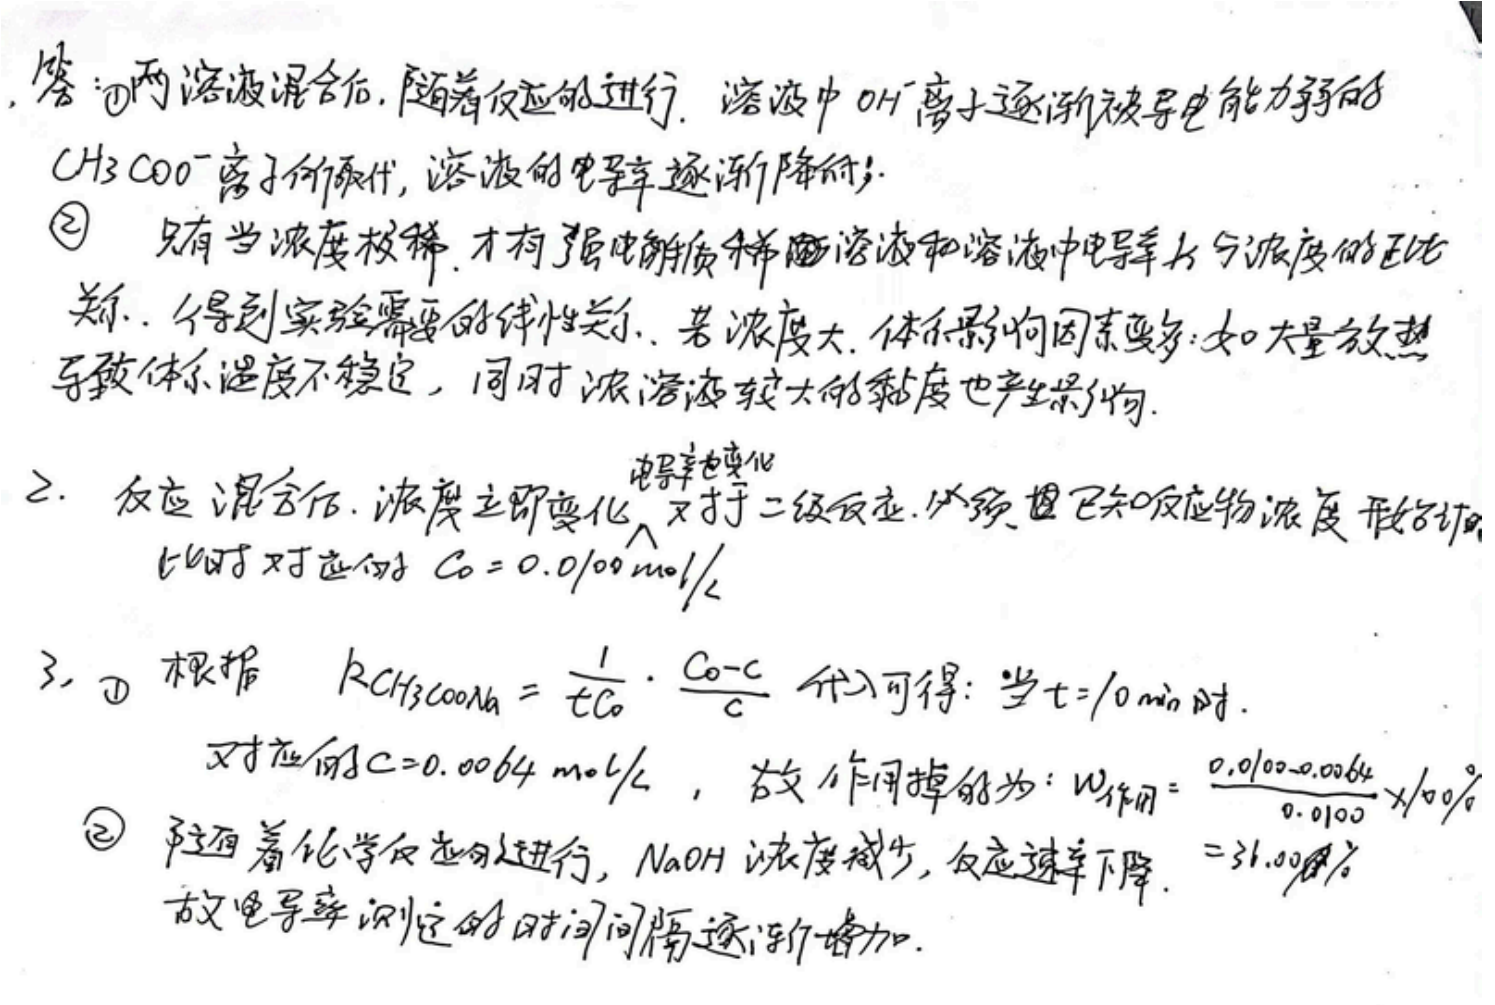 答:①两溶液混合后,随着反应的进行.溶液中OH⁻离子逐渐被导电能力弱的
CH3COO⁻离子所取代,溶液的电导率逐渐降低;
② 只有当浓度极稀.才有强电解质稀溶液和溶液中电导率k与浓度的正比
关系.得到实验需要的线性关系.若浓度大.体系影响因素变多:如大量放热
导致体系温度不稳定,同时浓溶液较大的黏度也产生影响.
电导率也变化
2. 反应混合后.浓度立即变化∧对于二级反应.必须 已知反应物浓度 开始计时
此时对应的 C₀=0.0100mol/L
3. ① 根据 kCH3COONa = 1/tC₀ · C₀-C/C 代入可得:当t=10min时.
对应的C=0.0064 mol/L , 故作用掉的为:W作用= 0.0100-0.0064/0.0100 ×100%
② 随着化学反应的进行,NaOH浓度减少,反应速率下降. =36.00%
故电导率测定的时间间隔逐渐增加.